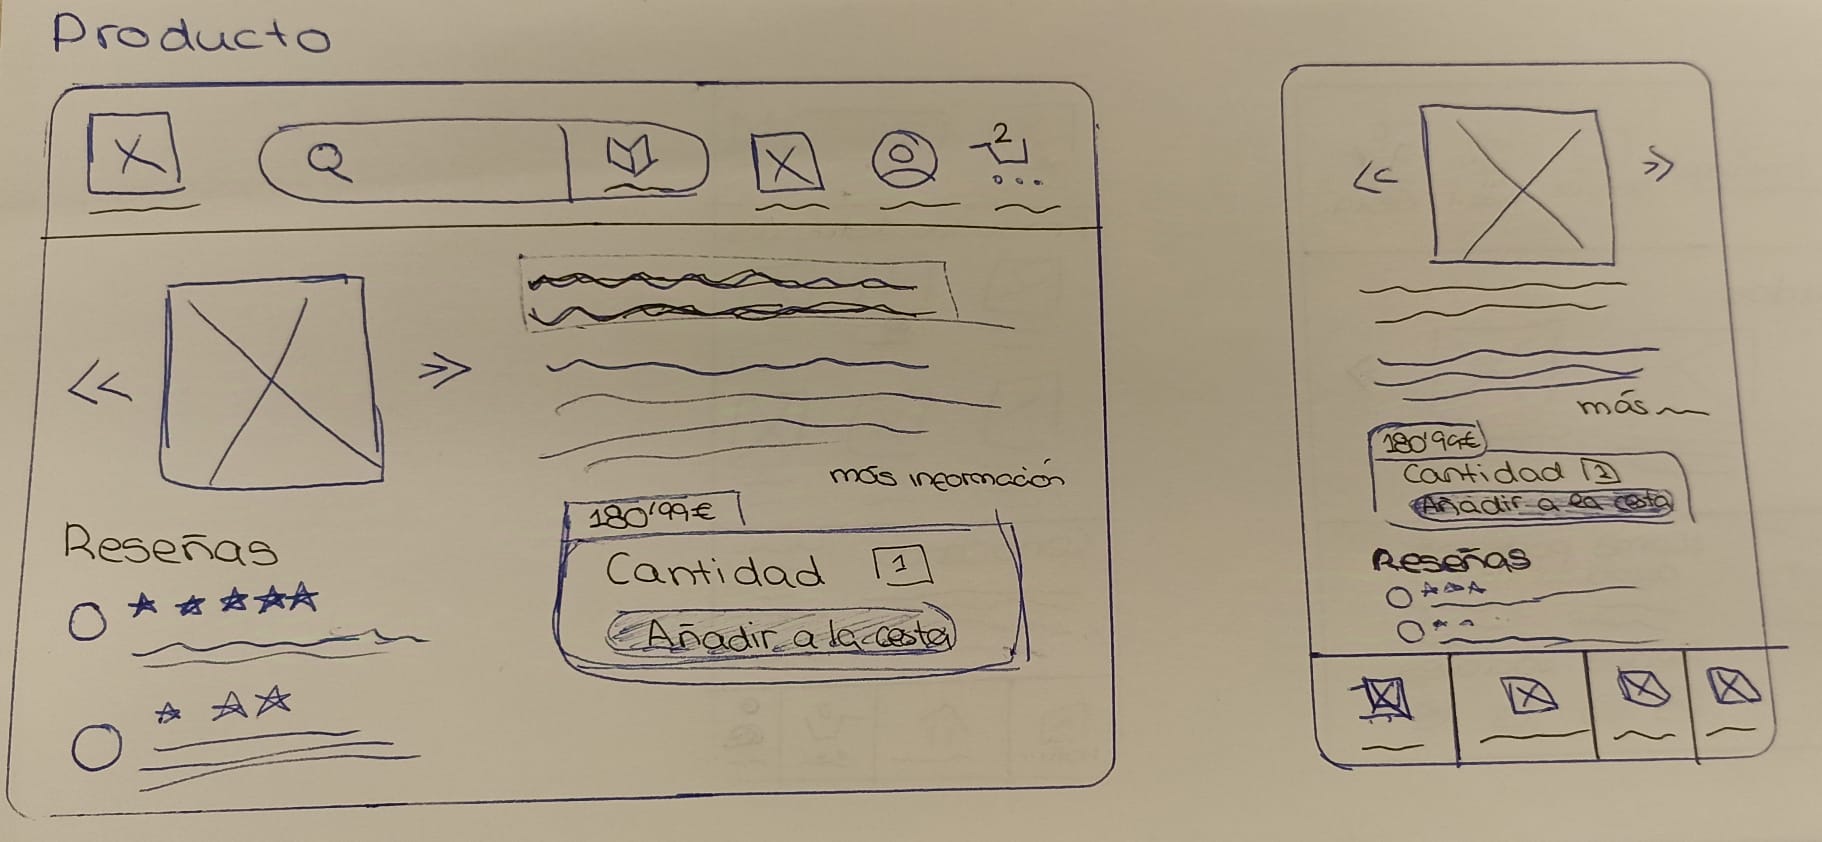 Producto
2
más información
180'99€
Cantidad 1
Añadir a la cesta
Reseñas
más
180'99€
Cantidad 1
Añadir a la cesta
Reseñas